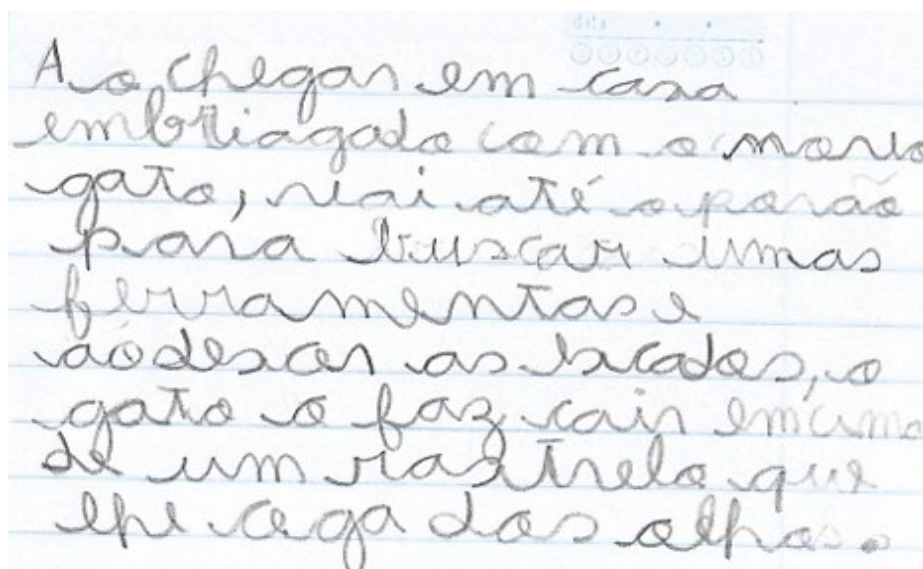 Ao chegar em casa
embriagado com o novo
gato, vai até o porão
para buscar umas
ferramentas e
ao descer as escadas, o
gato o faz cair em cima
de um rastrelo que
lhe cega dos olhos.